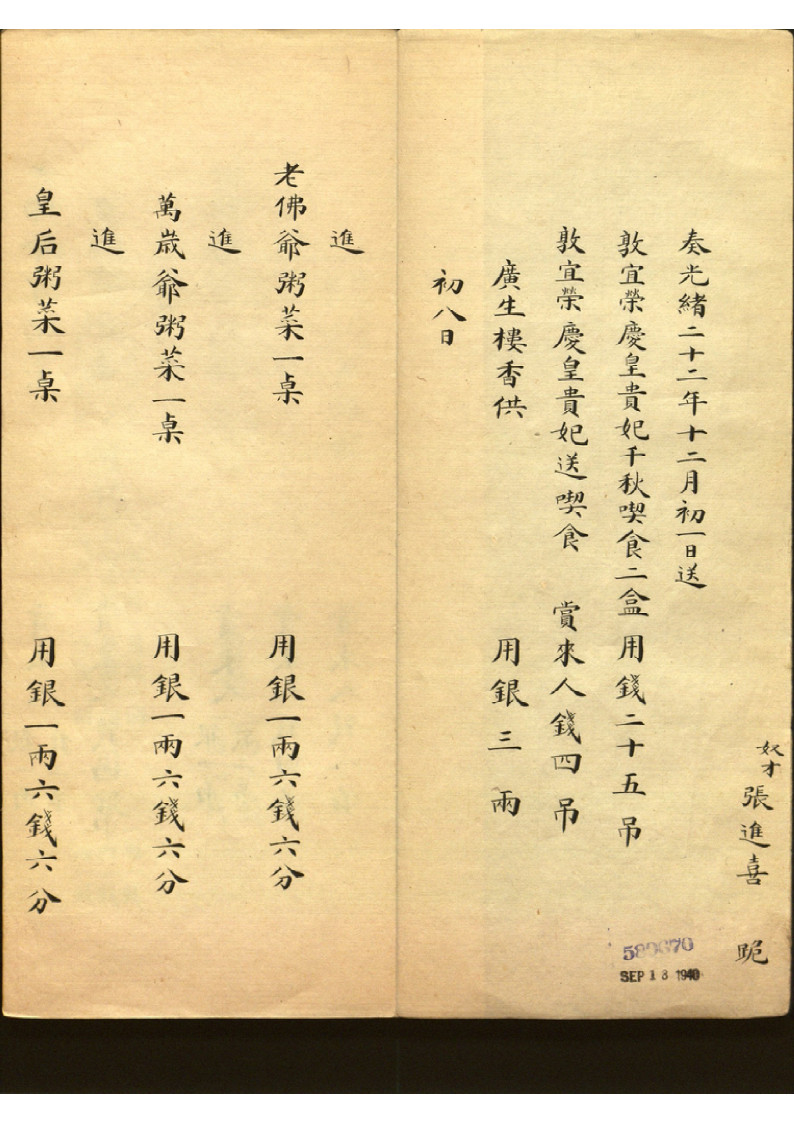 奴才張進喜 跪
奏光緒二十二年十二月初一日送
敦宜榮慶皇貴妃千秋喫食二盒用錢二十五吊
敦宜榮慶皇貴妃送喫食 賞來人錢四吊
廣生樓香供 用銀三兩
初八日
進
老佛爺粥菜一桌 用銀一兩六錢六分
進
萬歲爺粥菜一桌 用銀一兩六錢六分
進
皇后粥菜一桌 用銀一兩六錢六分
SEP 18 1940